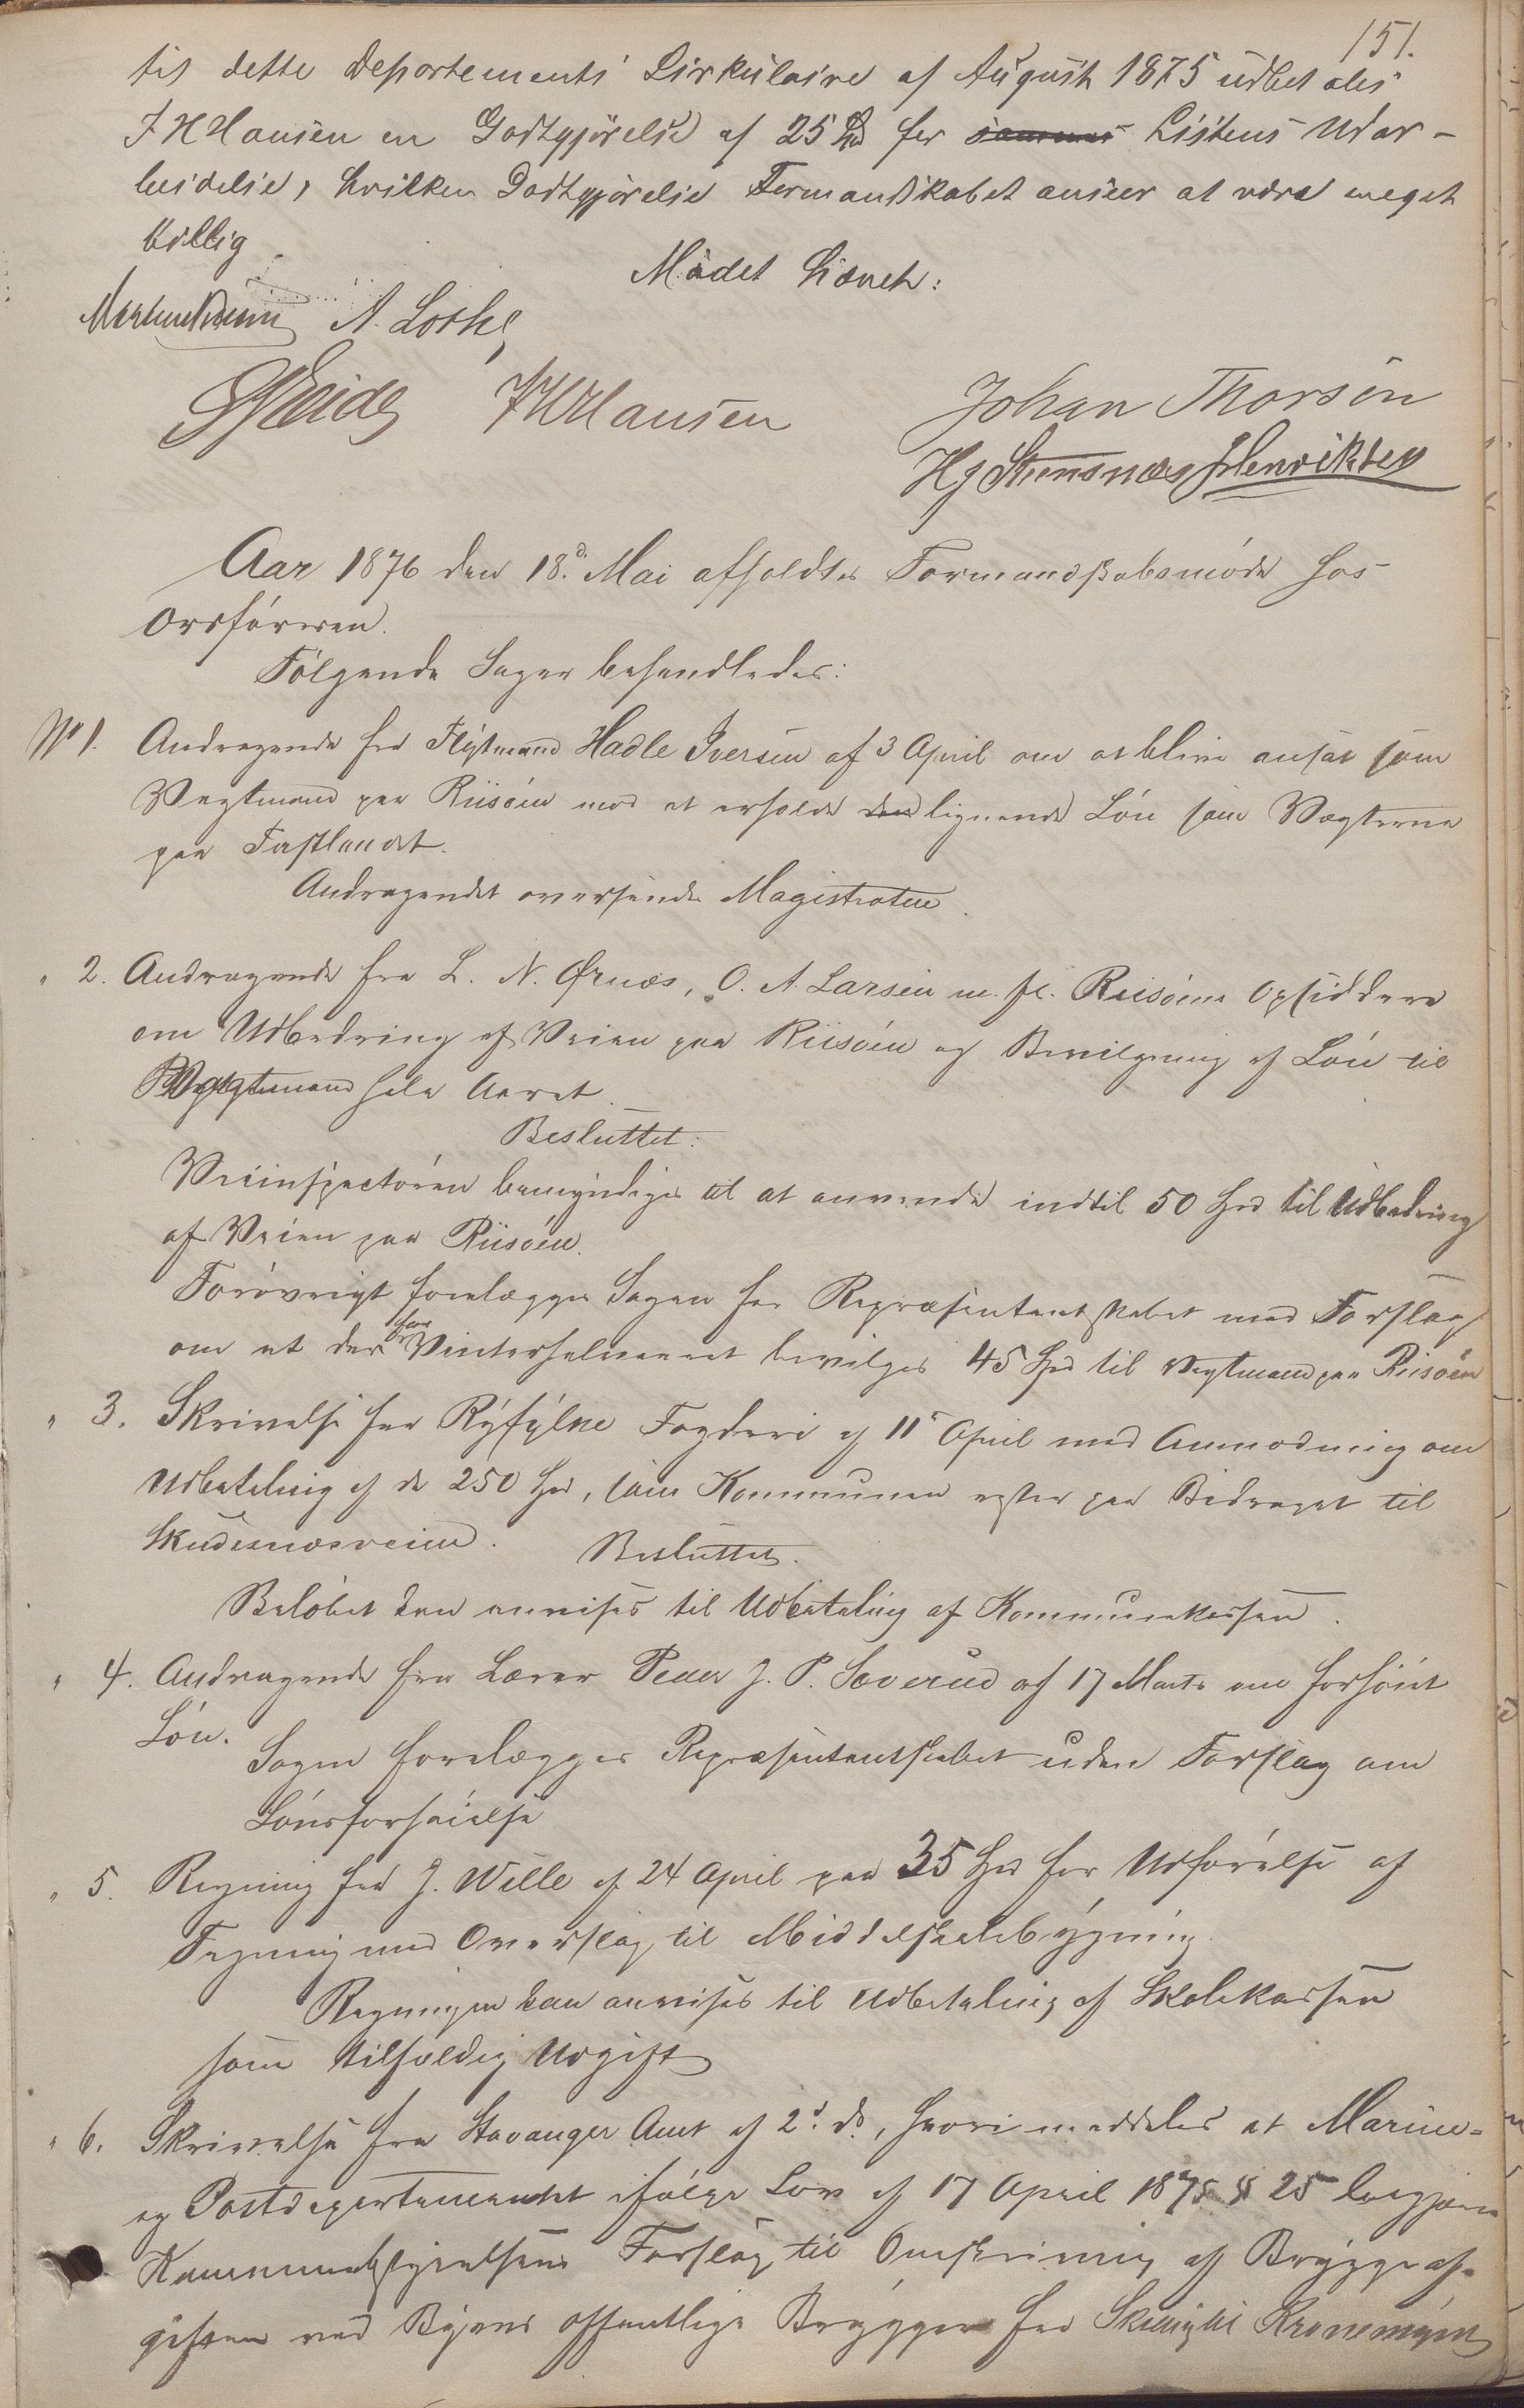 151.
til dette Departements Cirkulaire af August 1875 udbetales
J H Hansen en Godtgjörelse af 25 Spd for sammes Listens Udar-
beidelse, hvilken Godtgjörelse Formandskabet anseer at være meget
billig
Mödet hævet:
A. Lothe
J H Hansen
Johan Thorsen
H J Stensnæs J Henriksen
Aar 1876 den 18d. Mai afholdtes Formandskabsmöde hos
Ordföreren.
Fölgende Sager behandledes:
No 1. Andragende fra Fligtmand Hadle Iversen af 3 April om at blive ansat som
Vægtmand paa Riisöen mod at erholde den lignende Lön som Vægterne
paa Fastlandet.
Andragendet oversendes Magistraten.
" 2. Andragende fra L. N. Ørnæs, O. A. Larsen m. fl. Riisöens Opsiddere
om Udbedring af Veien paa Riisöen og Bevilgning af Lön til
Vægtmand hele Aaret.
Besluttet:
Veiinspectören bemyndiges til at anvende indtil 50 Spd til Udbedring
af Veien paa Riisöen.
Forövrigt forelægges Sagen for Repræsentantskabet med Forslag
om at der for Vinterhalvaaret bevilges 45 Spd til Vægtmand paa Riisöen
" 3. Skrivelse fra Ryfylke Fogderi af 11 April med Anmodning om
Udbetaling af de 250 Spd, som Kommunen rester paa Bidraget til
Skudesnæsveien. Besluttet.
Belöbet kan anvises til Udbetaling af Kommunekassen.
" 4. Andragende fra Lærer Peder J. P. Soverud af 17 Marts om forhöiet
Lön.
Sagen forelægges Repræsentantskabet uden Forslag om
Lönsforhöielse
" 5. Regning fra J. Wille af 24 April paa 35 Spd for Udförelse af
Tegning med Overslag til Middelskolebygning.
Regningen kan anvises til Udbetaling af Skolekassen
som tilfældig Udgift
" 6. Skrivelse fra Stavanger Amt af 2d. ds., hvori meddeles at Marine-
og Postdepartementet ifölge Lov af 17 April 1875 § 25
Kommunebestyrelsens Forslag til Omskrivning af Bryggeaf-
giften ved Byens offentlige Brygger fra Skillings Kronemynt